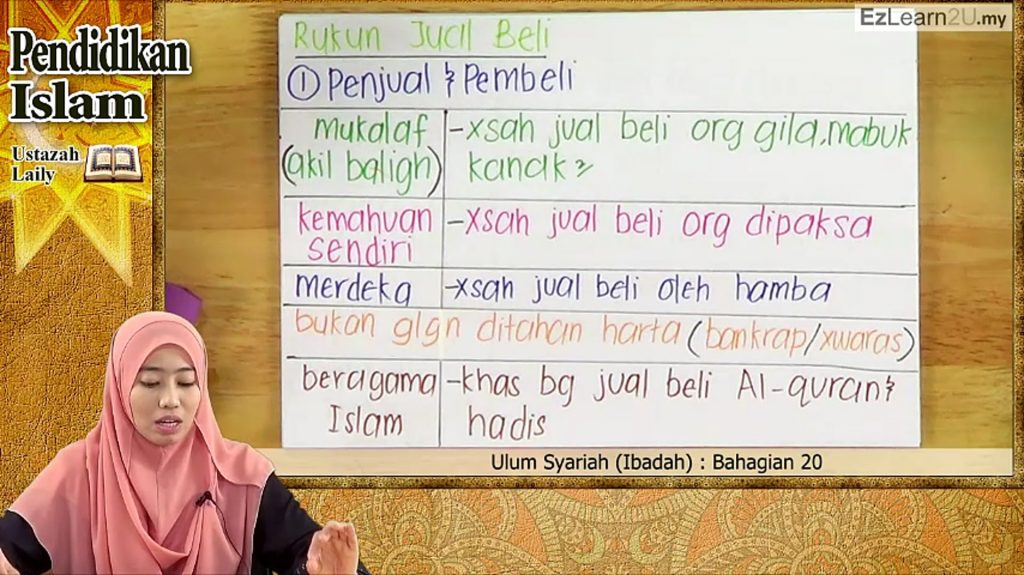 EzLearn2U.my
Pendidikan
Islam
Ustazah
Laily
Rukun Jual Beli
① Penjual & Pembeli
mukalaf
(akil baligh)
-xsah jual beli org gila, mabuk
kanak2
kemahuan
sendiri
-xsah jual beli org dipaksa
merdeka
-xsah jual beli oleh hamba
bukan glgn ditahan harta (bankrap/xwaras)
beragama
Islam
-khas bg jual beli Al-quran &
hadis
Ulum Syariah (Ibadah) : Bahagian 20